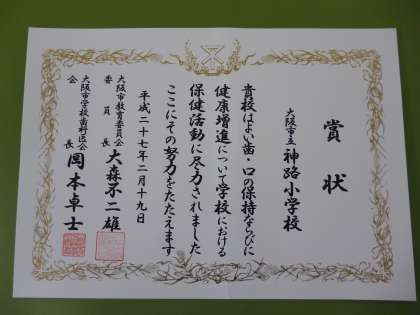 賞状
大阪市立神路小学校
貴校はよい歯・口の保持ならびに
健康増進について学校における
保健活動に尽力されました
ここにその努力をたたえます
平成二十七年二月十九日
大阪市教育委員会
委員長 大森不二雄
大阪市学校歯科医会
会長 岡本卓士